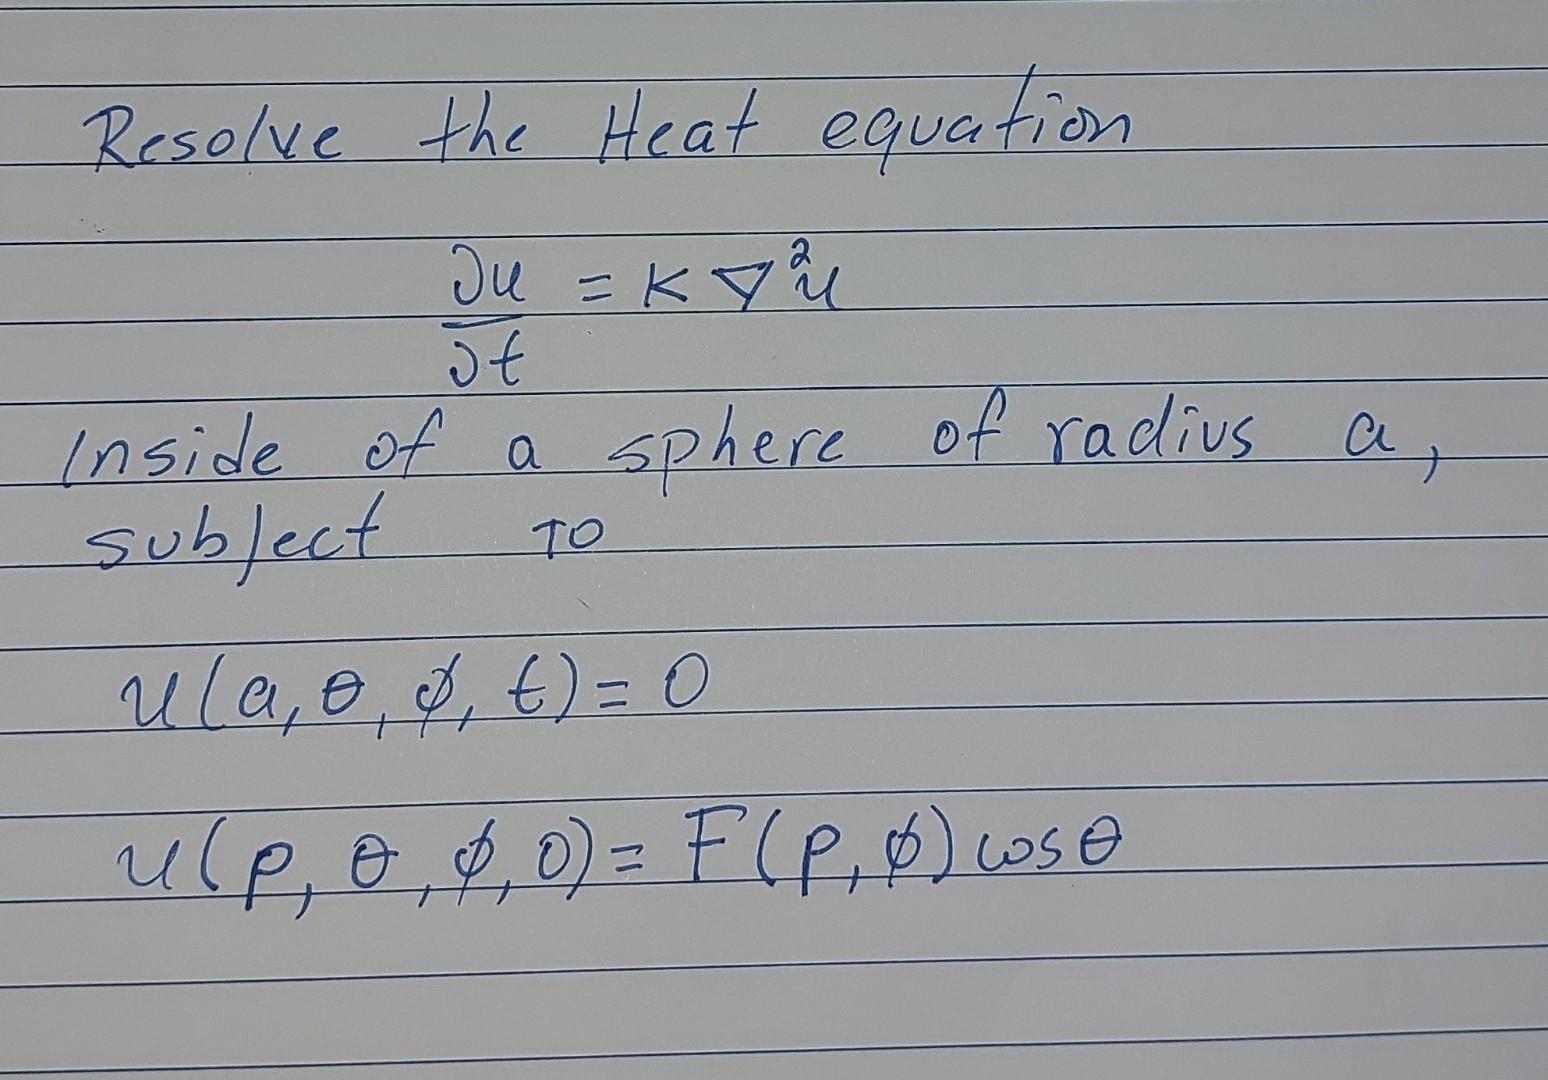 Resolve the Heat equation
∂u/∂t = K ∇²u
Inside of a sphere of radius a,
subject TO
u(a, θ, φ, t) = 0
u(ρ, θ, φ, 0) = F(ρ, φ) cos θ